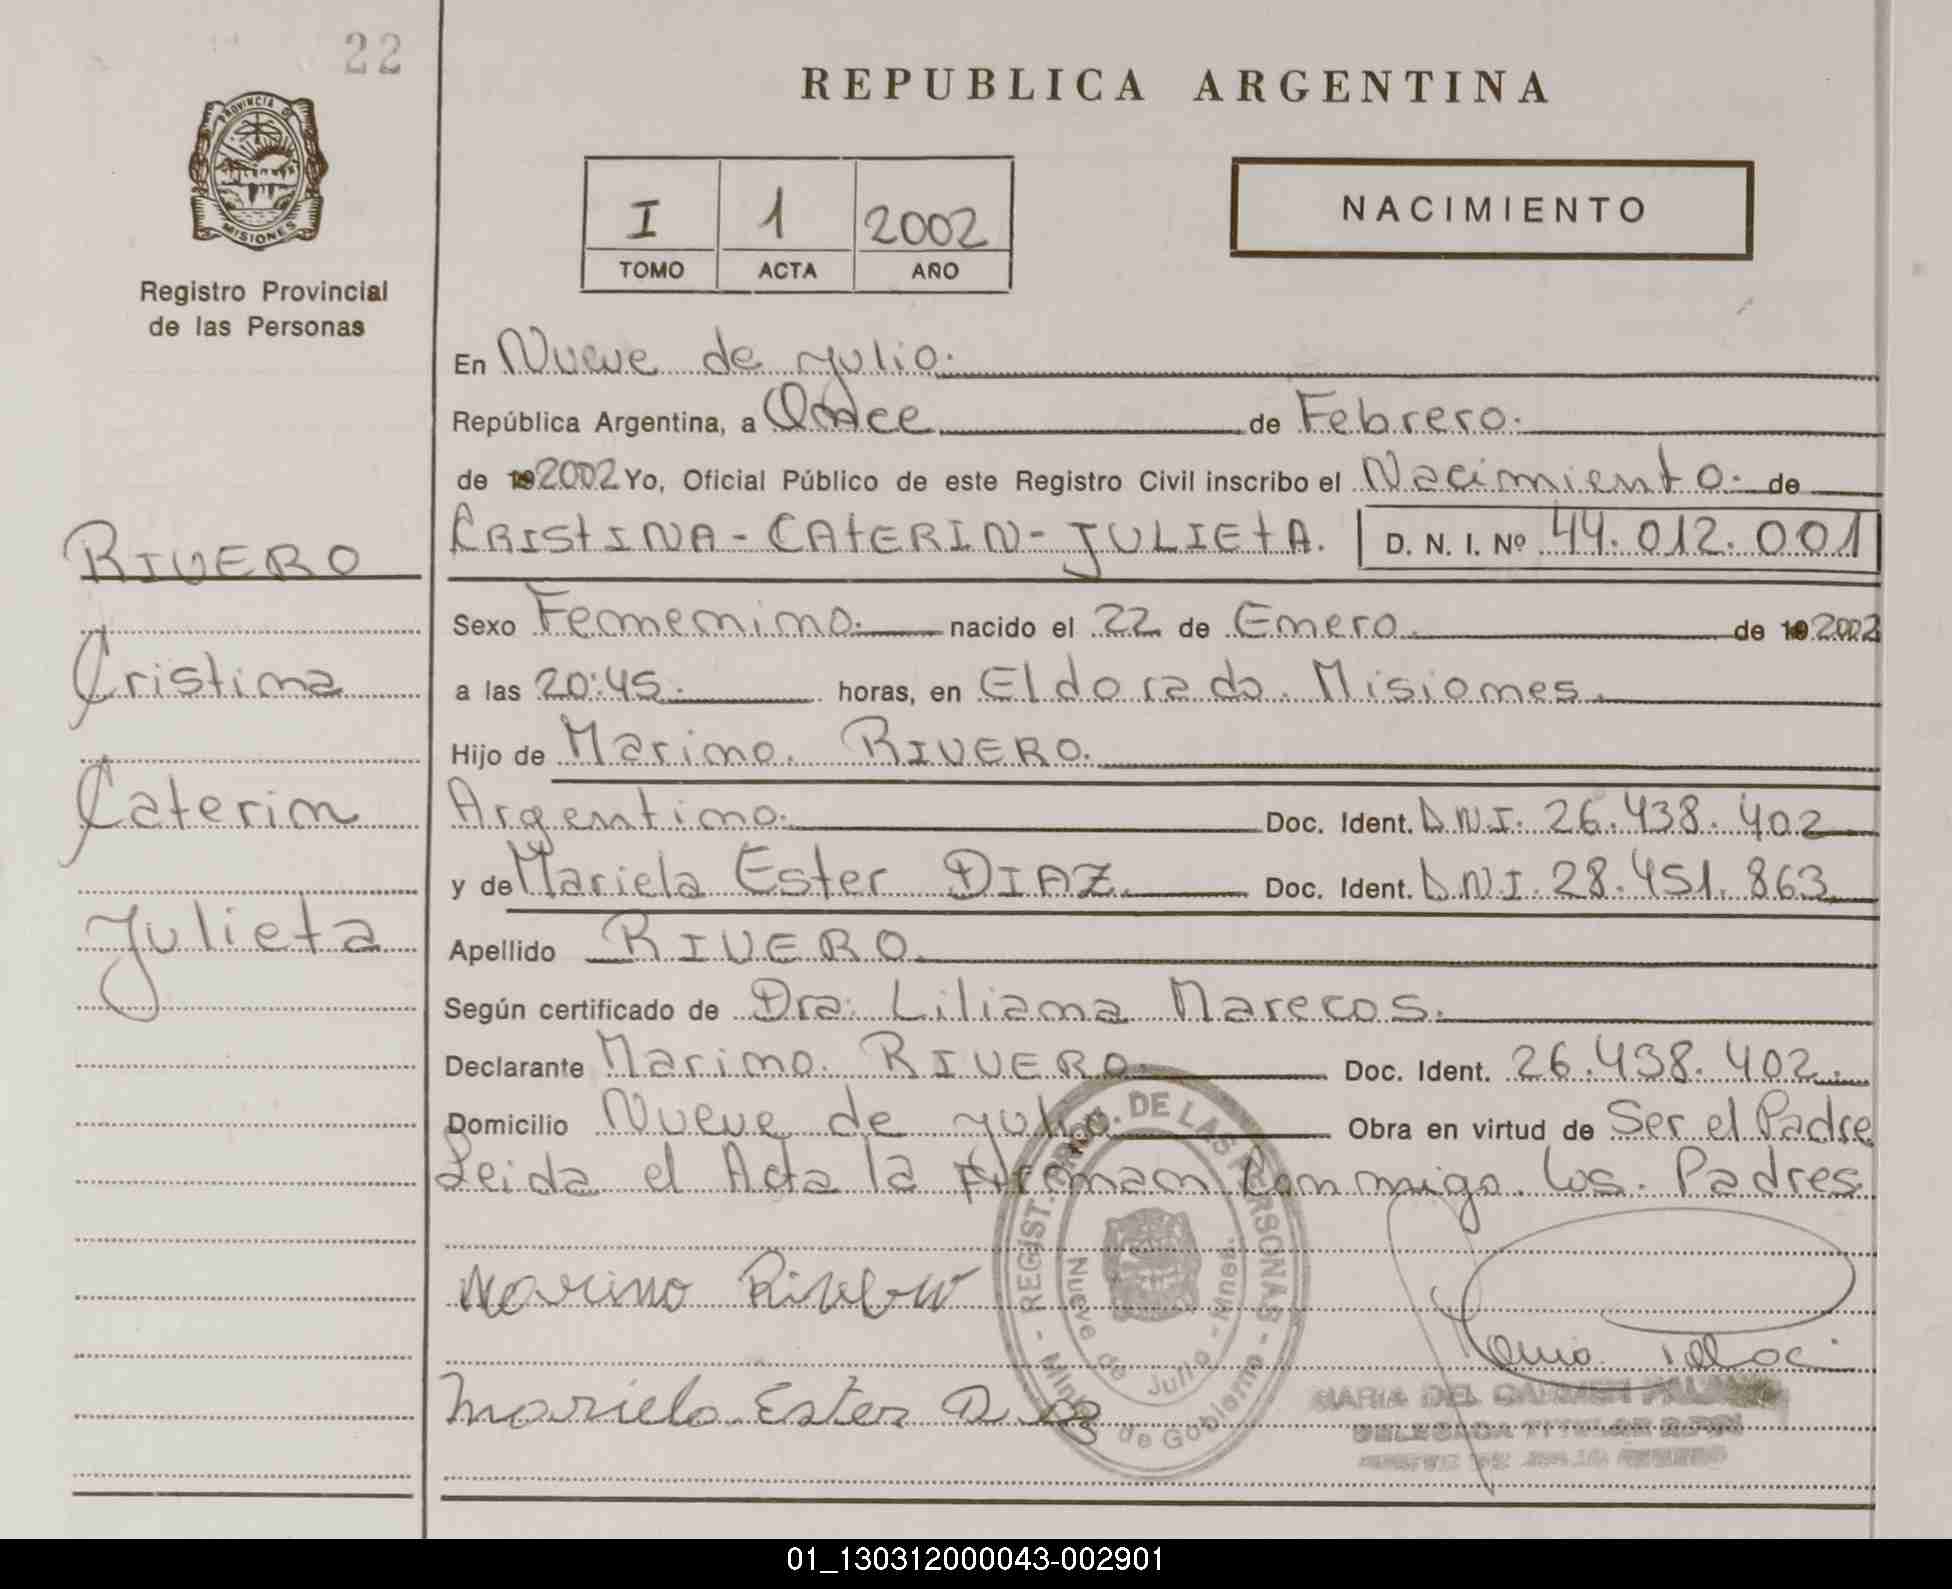 22
REPUBLICA ARGENTINA
PROVINCIA DE
MISIONES
Registro Provincial
de las Personas
I 1 2002
TOMO ACTA AÑO
NACIMIENTO
En Nueve de Julio.
República Argentina, a Once de Febrero.
de 192002 Yo, Oficial Público de este Registro Civil inscribo el Nacimiento. de
CRIStINA - CAtERIN - JULIEtA. D. N. I. Nº 44.012.001
Sexo Femenino. nacido el 22 de Enero. de 192002
a las 20:45. horas, en Eldorado. Misiones.
Hijo de Marino. RIVERO.
Argentino. Doc. Ident. D.N.I. 26.438.402
y de Mariela Ester DIAZ. Doc. Ident. D.N.I. 28.451.863
Apellido RIVERO.
Según certificado de Dra. Liliana Marecos.
Declarante Marino. RIVERO. Doc. Ident. 26.438.402.
Domicilio Nueve de Julio Obra en virtud de Ser el Padre
Leida el Acta la Firman Conmigo. los. Padres
Marino Rivero
Mariela Ester Diaz
RIVERO
Cristina
Caterin
Julieta
REGIST. PROV. DE LAS PERSONAS - Mint. de Gobierno -
Nueve de Julio - Mnes.
MARIA DEL CARMEN
DELEGADA TITULAR
01_130312000043-002901